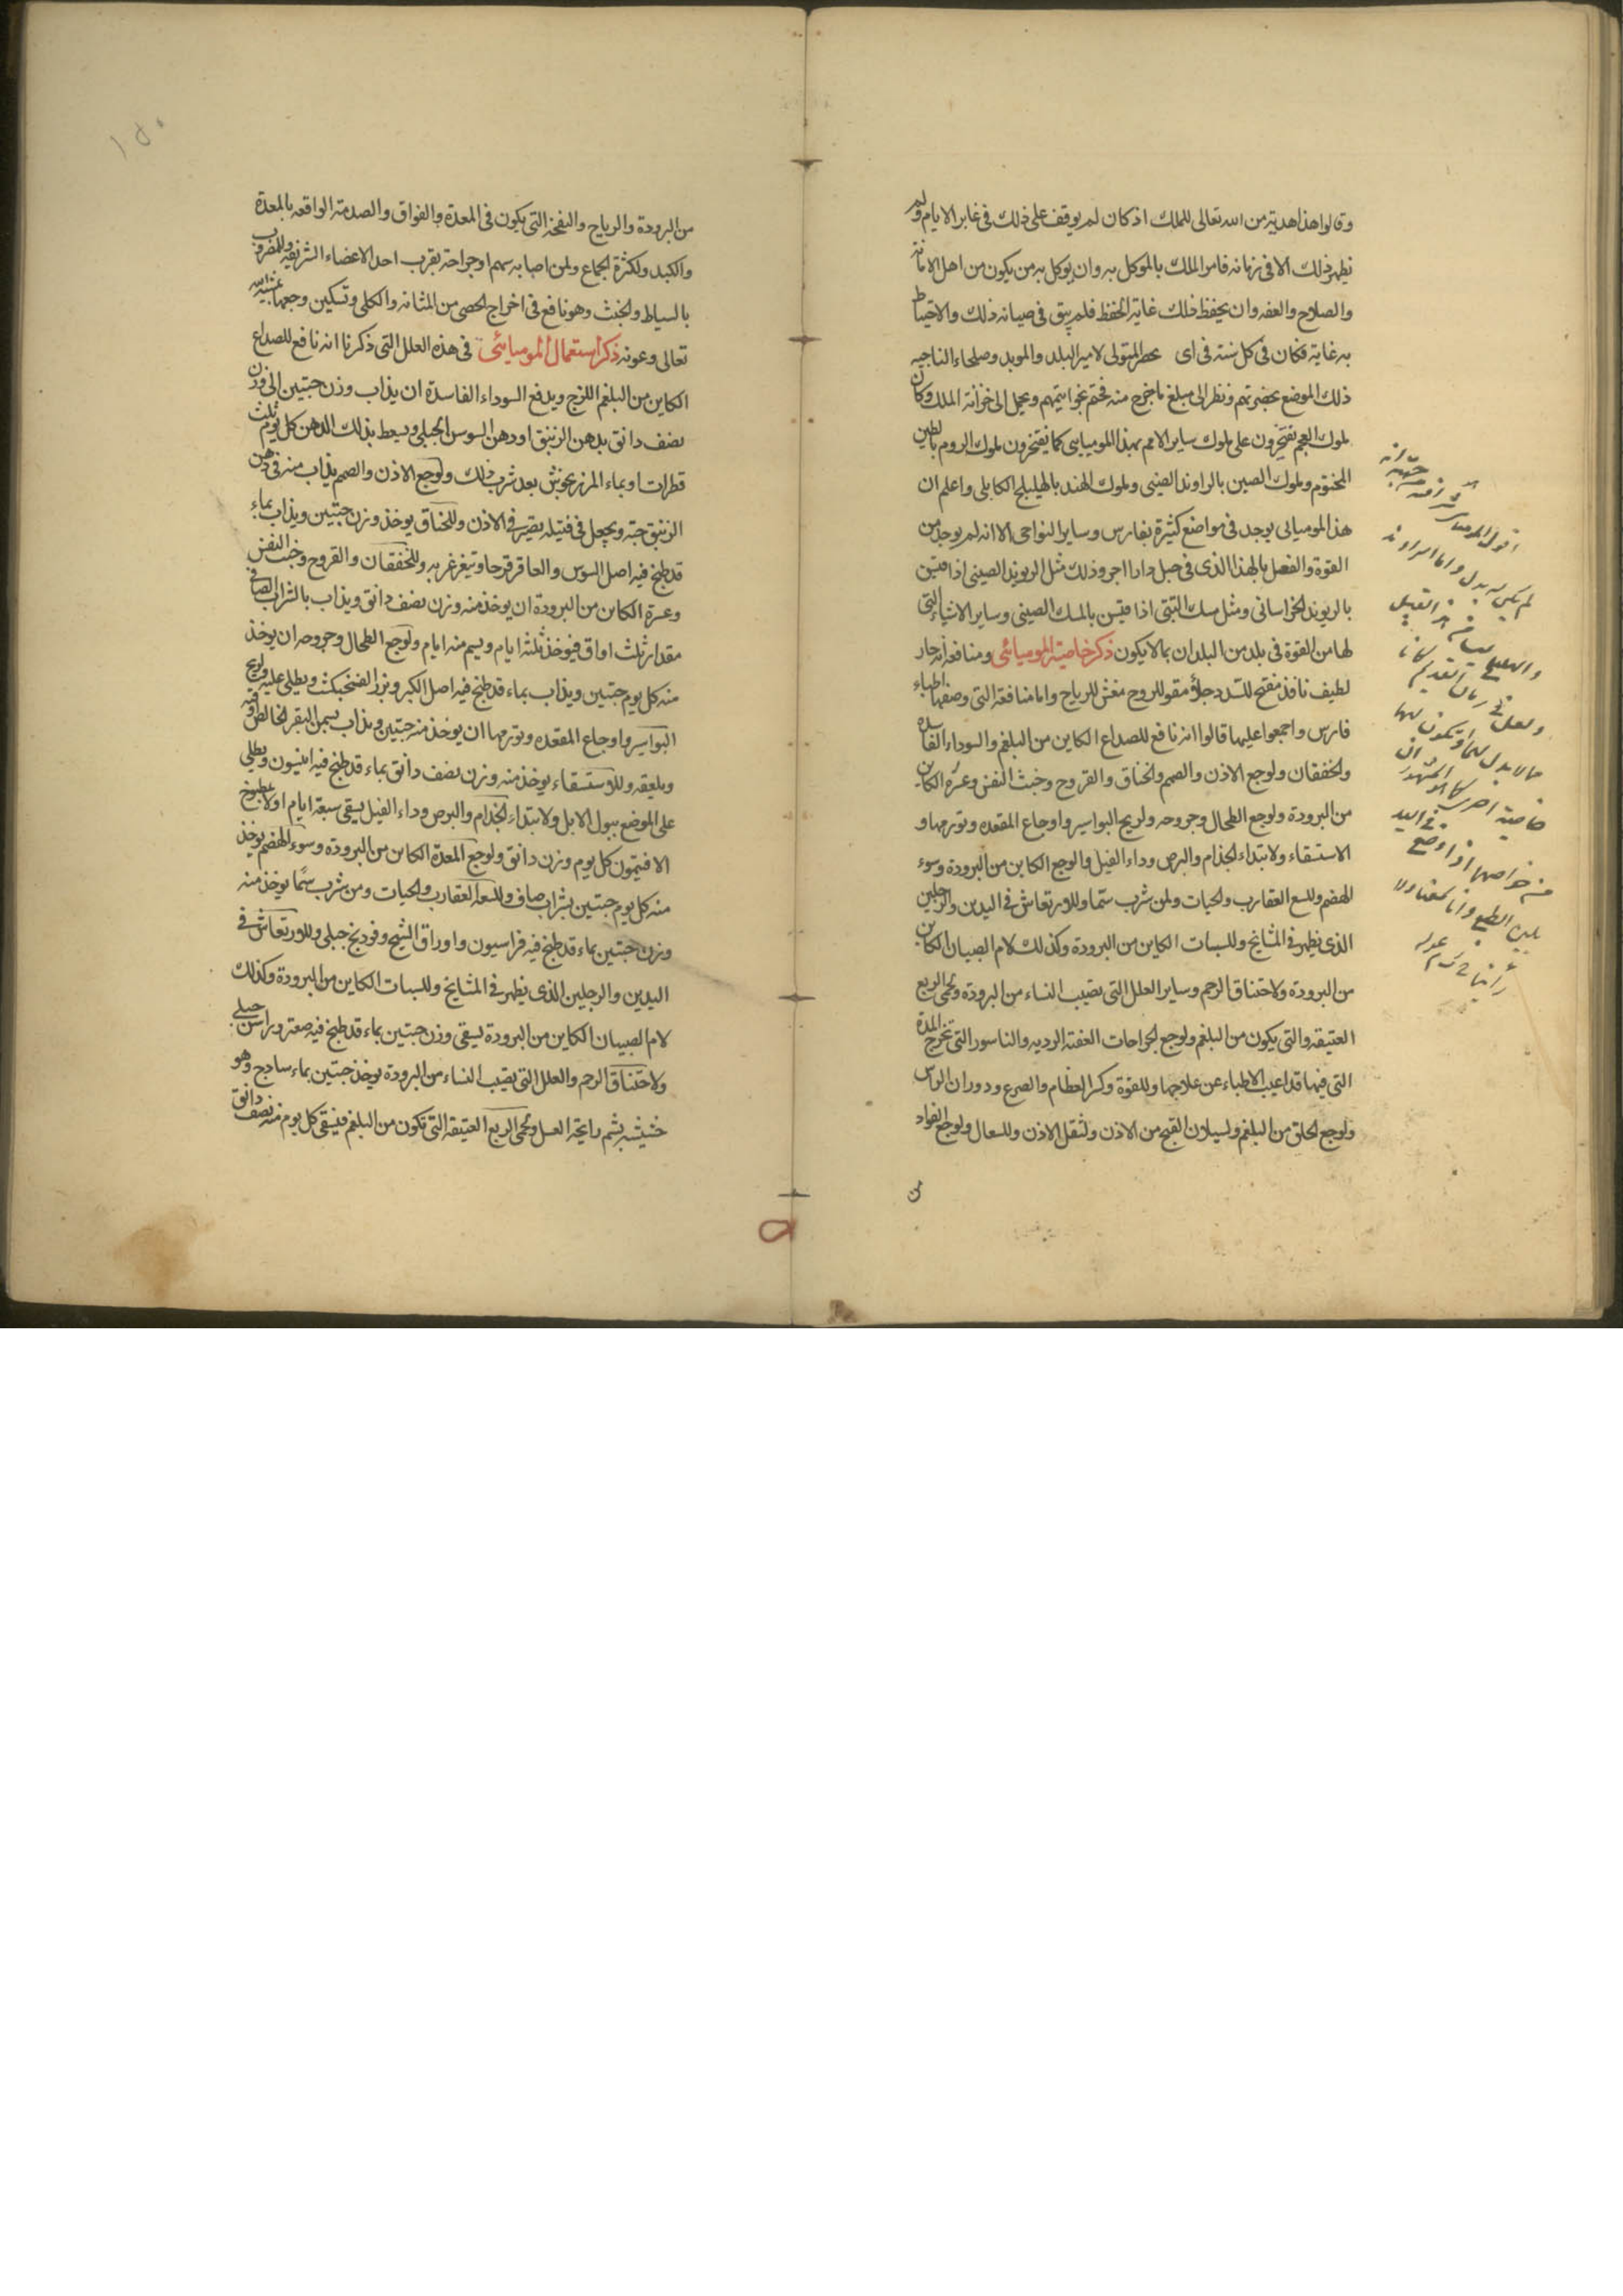 وقالوا هذا هدية من الله تعالى للملك اذ كان لم يوقف على ذلك فى غابر الايام ولم
يظهر ذلك الا فى زمانه فامر الملك بالموكل به وان يوكل به من يكون من اهل الامانة
والصلاح والعفه وان يحفظ ذلك غاية الحفظ فلم يبق فى صيانه ذلك والاحتياط
به غاية فكان فى كل سنة فى اى المتولى لامير البلد والموبد وصلحاء الناحيه
ذلك الموضع بحضرتهم ونظر الى مبلغ ما خرج منه فختم بخواتيمهم وبحمل الى خزانة الملك وكان
ملوك العجم يفتخرون على ملوك ساير الامم بهذا الموميايى كما يفتخرون ملوك الروم بالطين
المختوم وملوك الصين بالراوند الصينى وملوك الهند بالهليلج الكابلى واعلم ان
هذا الموميائى يوجد فى مواضع كثيرة بفارس وساير النواحى الا انه لم يوجد من
القوة والفعل بالهذا الذى فى جبل دارا اجر وذلك مثل الريوند الصينى اذا قيس
بالريوند الخراسانى ومثل مسك التبتى اذا قيس بالمسك الصينى وساير الاشياء التى
لها من القوة فى بلد من البلدان بما لا يكون ذكر خاصية الموميائى ومنافعه انه حار
لطيف نافذ مفتح للسدد جلاؤ مقو للروح مفش للرياح واما منافعة التى وصفها اطباء
فارس واجمعوا عليها قالوا انه نافع للصداع الكاين من البلغم والسوداء الفاسدة
والخفقان ولوجع الاذن والصمم والخناق والقروح وخبث النفس وعسرة الكاين
من البرودة ولوجع الطحال وجروحه ولريح البواسير واوجاع المقعده وتورمها و
الاستسقاء ولابتداء الجذام والبرص وداء الفيل والوجع الكاين من البرودة وسوء
الهضم وللسع العقارب والحيات ولمن شرب سمّا وللارتعاش فى اليدين والرجلين
الذى يظهر فى المشايخ وللسبات الكاين من البرودة وكذلك لام الصبيان الكاين
من البرودة ولاختناق الرحم وساير العلل التى تصيب النساء من البرودة ولحمى الربع
العتيقه والتى يكون من البلغم ولوجع الجراحات العفنة الرديه والناسور التى تخرج المدة
التى فيها قد اعيب الاطباء عن علاجها وللقوة وكسر العظام والصرع ودوران الراس
ولوجع الحلق من البلغم ولسيلان القيح من الاذن ولثقل الاذن وللسعال ولوجع الفواد
من
من البرودة والرياح والنفخة التى يكون فى المعدة والفواق والصدمة الواقعه بالمعدة
والكبد ولكثرة الجماع ولمن اصابه سهم او جراحة بقرب احد الاعضاء الشريفه وللمضروب
بالسياط والخشب وهو نافع فى اخراج الحصى من المثانه والكلى وتسكين وجعها بمشية الله
تعالى وعونه ذكر استعمال الموميائى فى هذه العلل التى ذكرنا انه نافع للصداع
الكاين من البلغم اللزج ويدفع السوداء الفاسدة ان يذاب وزن حبتين الى وزن
نصف دانق بدهن الزنبق او دهن السوس الجبلى ويسعط بذلك الدهن كل يوم ثلث
قطرات او بماء المرزنجوش بعد شرب ذلك ولوجع الاذن والصمم يذاب منه فى دهن
الزنبق حبة ويجعل فى فتيله يصير فى الاذن وللخناق يوخذ وزن حبتين ويذاب بماء
قد طبخ فيه اصل السوس والعاقرقرحا ويتغرغر به وللخفقان والقروح وخبث النفس
وعسرة الكاين من البرودة ان يوخذ منه وزن نصف دانق ويذاب بالشراب الصافى
مقدار ثلث اواق فيوخذ ثلثة ايام ويسيم منه ايام ولوجع الطحال وجروحه ان يوخذ
منه كل يوم حبتين ويذاب بماء قد طبخ فيه اصل الكبر وبزر الفنجنكشت ويطلى عليه ولريح
البواسير واوجاع المقعده وتورمها ان يوخذ منه حبتين ويذاب بسمن البقر الخالص وقية
ويلعقه وللاستسقاء يوخذ منه وزن نصف دانق بماء قد طبخ فيه انيسون ويطلى
على الموضع ببول الابل ولابتداء الجذام والبرص وداء الفيل يسقى سبعة ايام اولا بمطبوخ
الافتيمون كل يوم وزن دانق ولوجع المعدة الكاين من البرودة وسوء الهضم يوخذ
منه كل يوم حبتين بشراب صاف وللسعة العقارب والحيات ومن شرب سمًا يوخذ منه
وزن حبتين بماء قد طبخ فيه فراسيون واوراق الشيح وفودنج جبلى وللارتعاش فى
اليدين والرجلين الذى يظهر فى المشايخ وللسبات الكاين من البرودة وكذلك
لام الصبيان الكاين من البرودة يسقى وزن حبتين بماء قد طبخ فيه صعتر وبراسن جبلى
ولاختناق الرحم والعلل التى تصيب النساء من البرودة يوخذ حبتين بماء ساذج وهو
حشيشه يشم رايحة العسل ولحمى الربع العتيقة التى تكون من البلغم فيسقى كل يوم منه نصف دانق